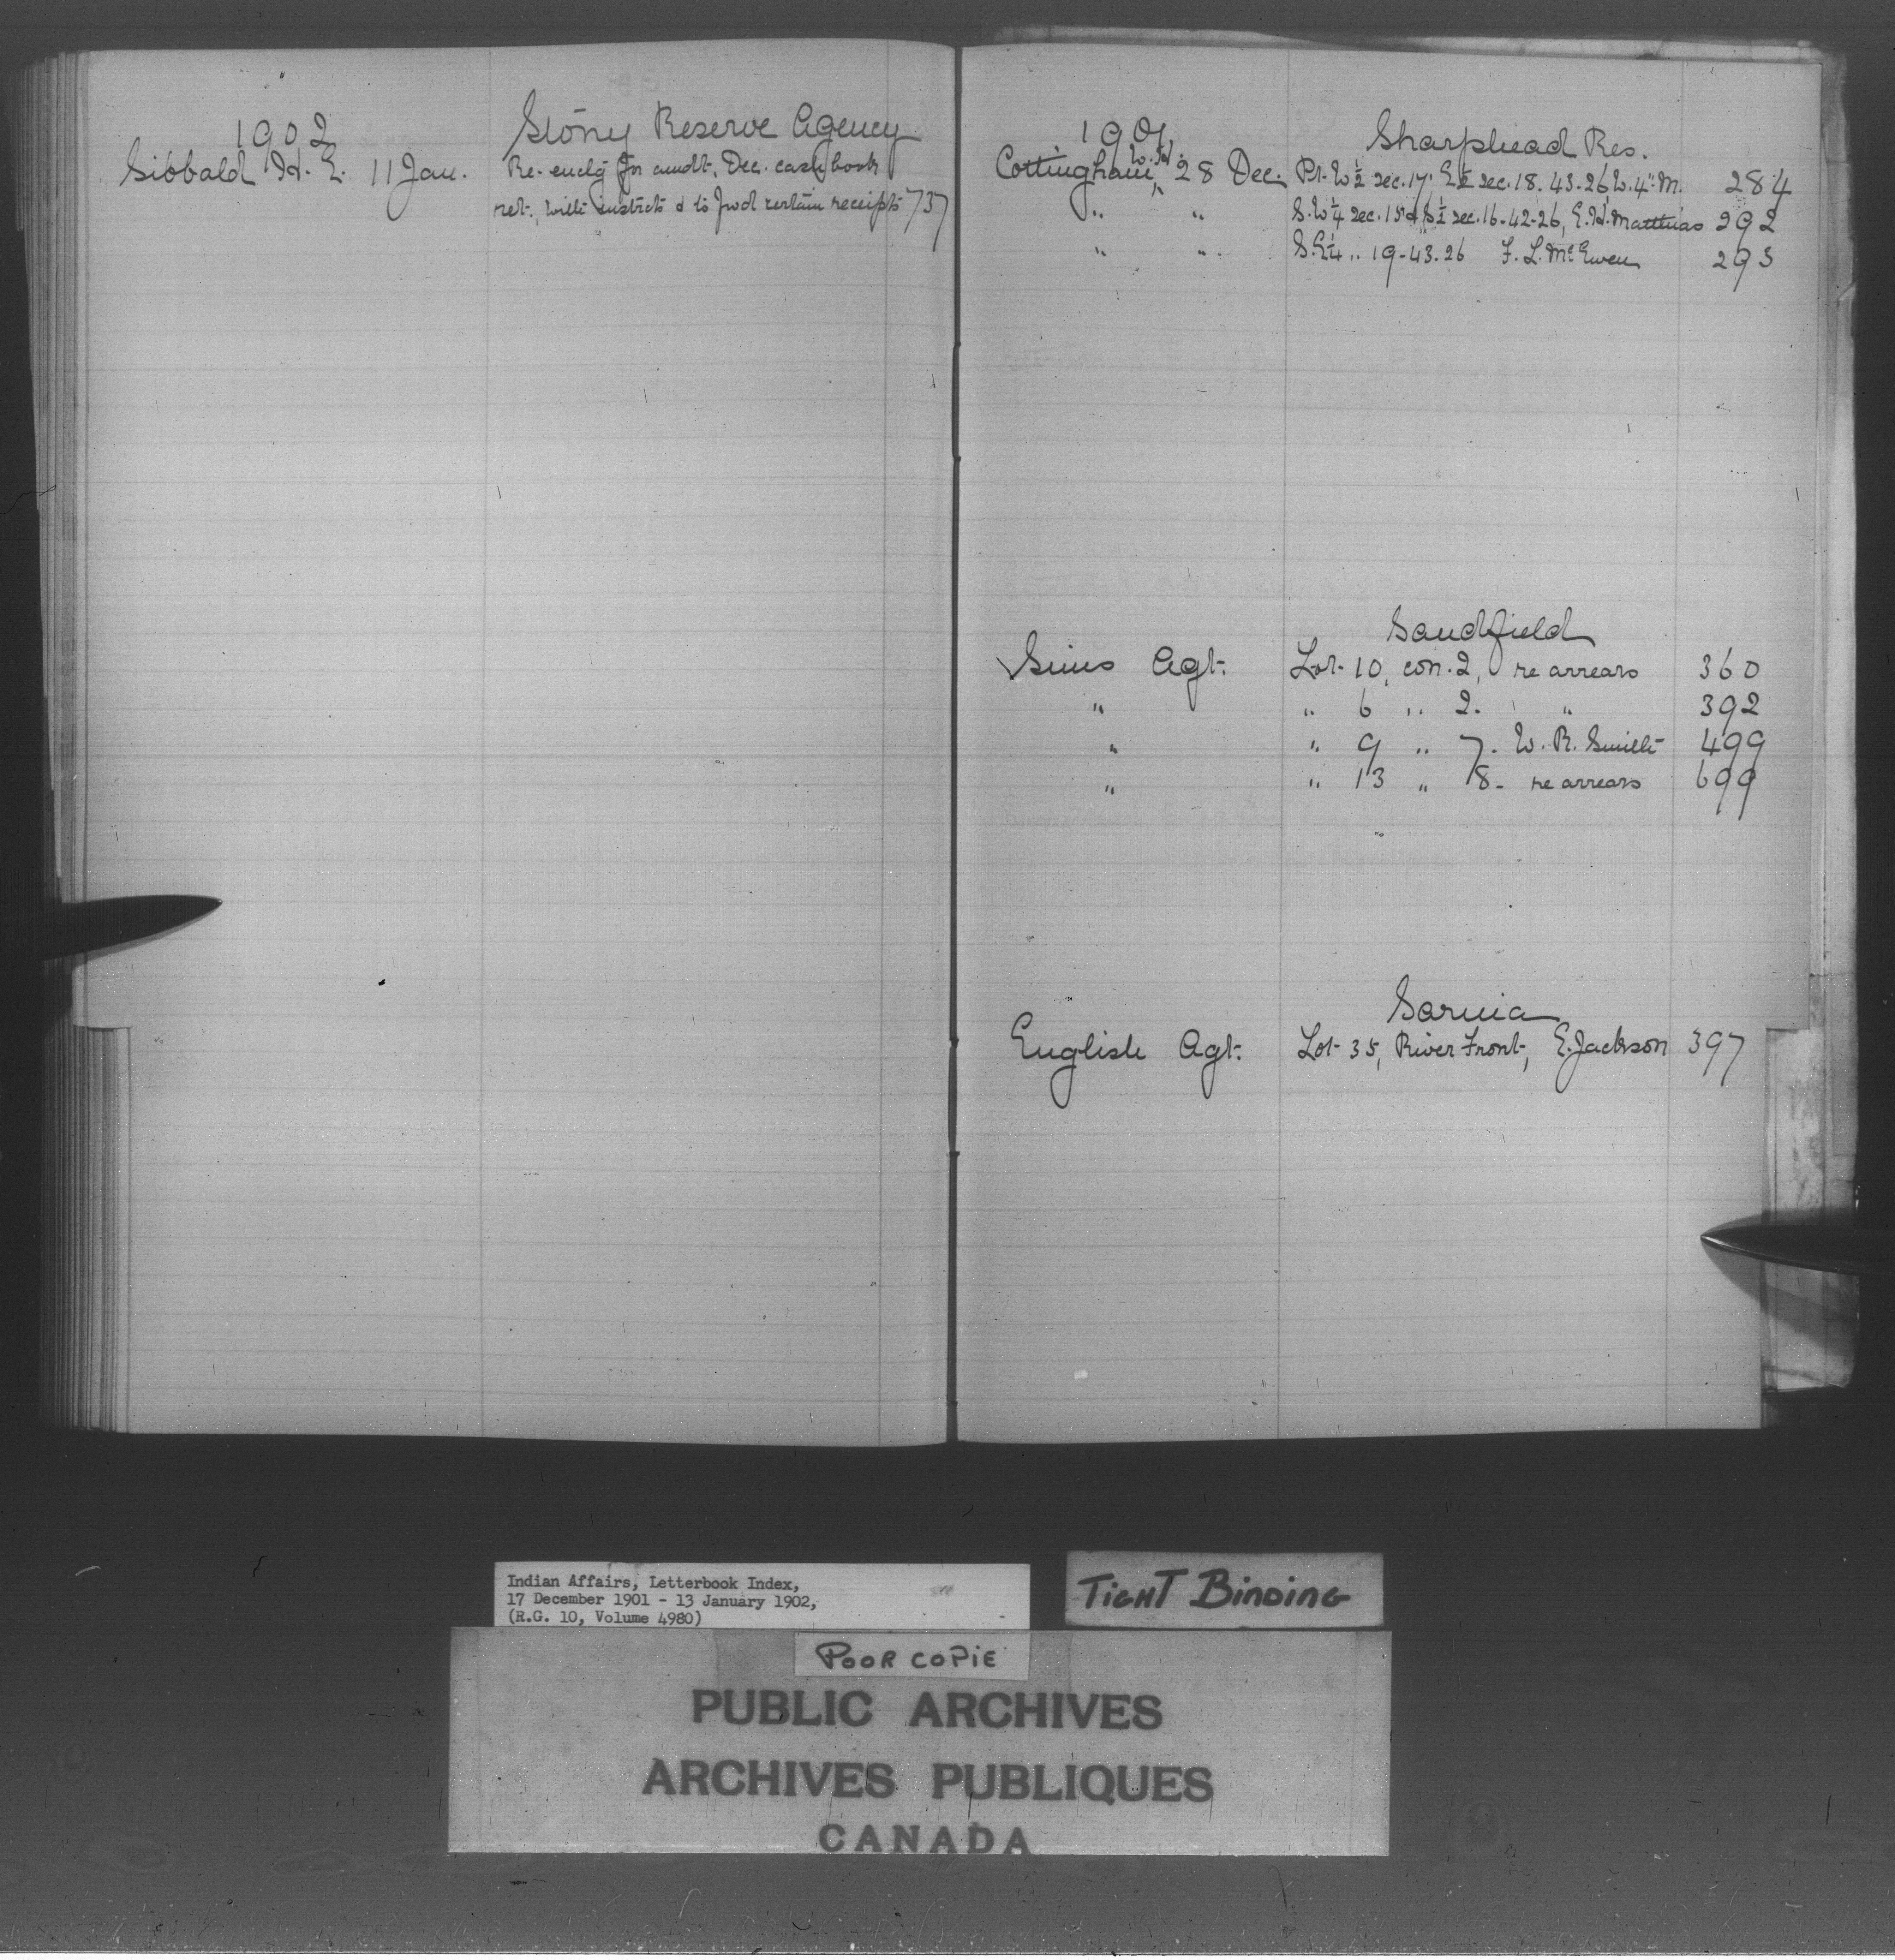 1902
Stony Reserve Agency
Sibbald H. E. 11 Jan. Re-enclg for amdt. Dec. cash book
ret. with instrcts & to fwd certain receipts 737
1901
Sharphead Res.
Cottingham, W. H. 28 Dec. Pt. W ½ sec. 17, E ½ sec. 18. 43-26, W. 4" M. 284
" " S.W ¼ sec. 15 & S ½ sec. 16-42-26, E. H. Matthias 292
" " S.E ¼ " 19-43-26 F. L. McEwen 293
Sandfield
Sims Agt. Lot 10, con. 2, re arrears 360
" " 6 " 2. " 392
" " 9 " 7. W. R. Smith 499
" " 13 " 8- re arrears 699
Sarnia
English Agt. Lot 35, River Front, E. Jackson 397
Indian Affairs, Letterbook Index,
17 December 1901 - 13 January 1902,
(R.G. 10, Volume 4980)
TIGHT BINDING
POOR COPIE
PUBLIC ARCHIVES
ARCHIVES PUBLIQUES
CANADA